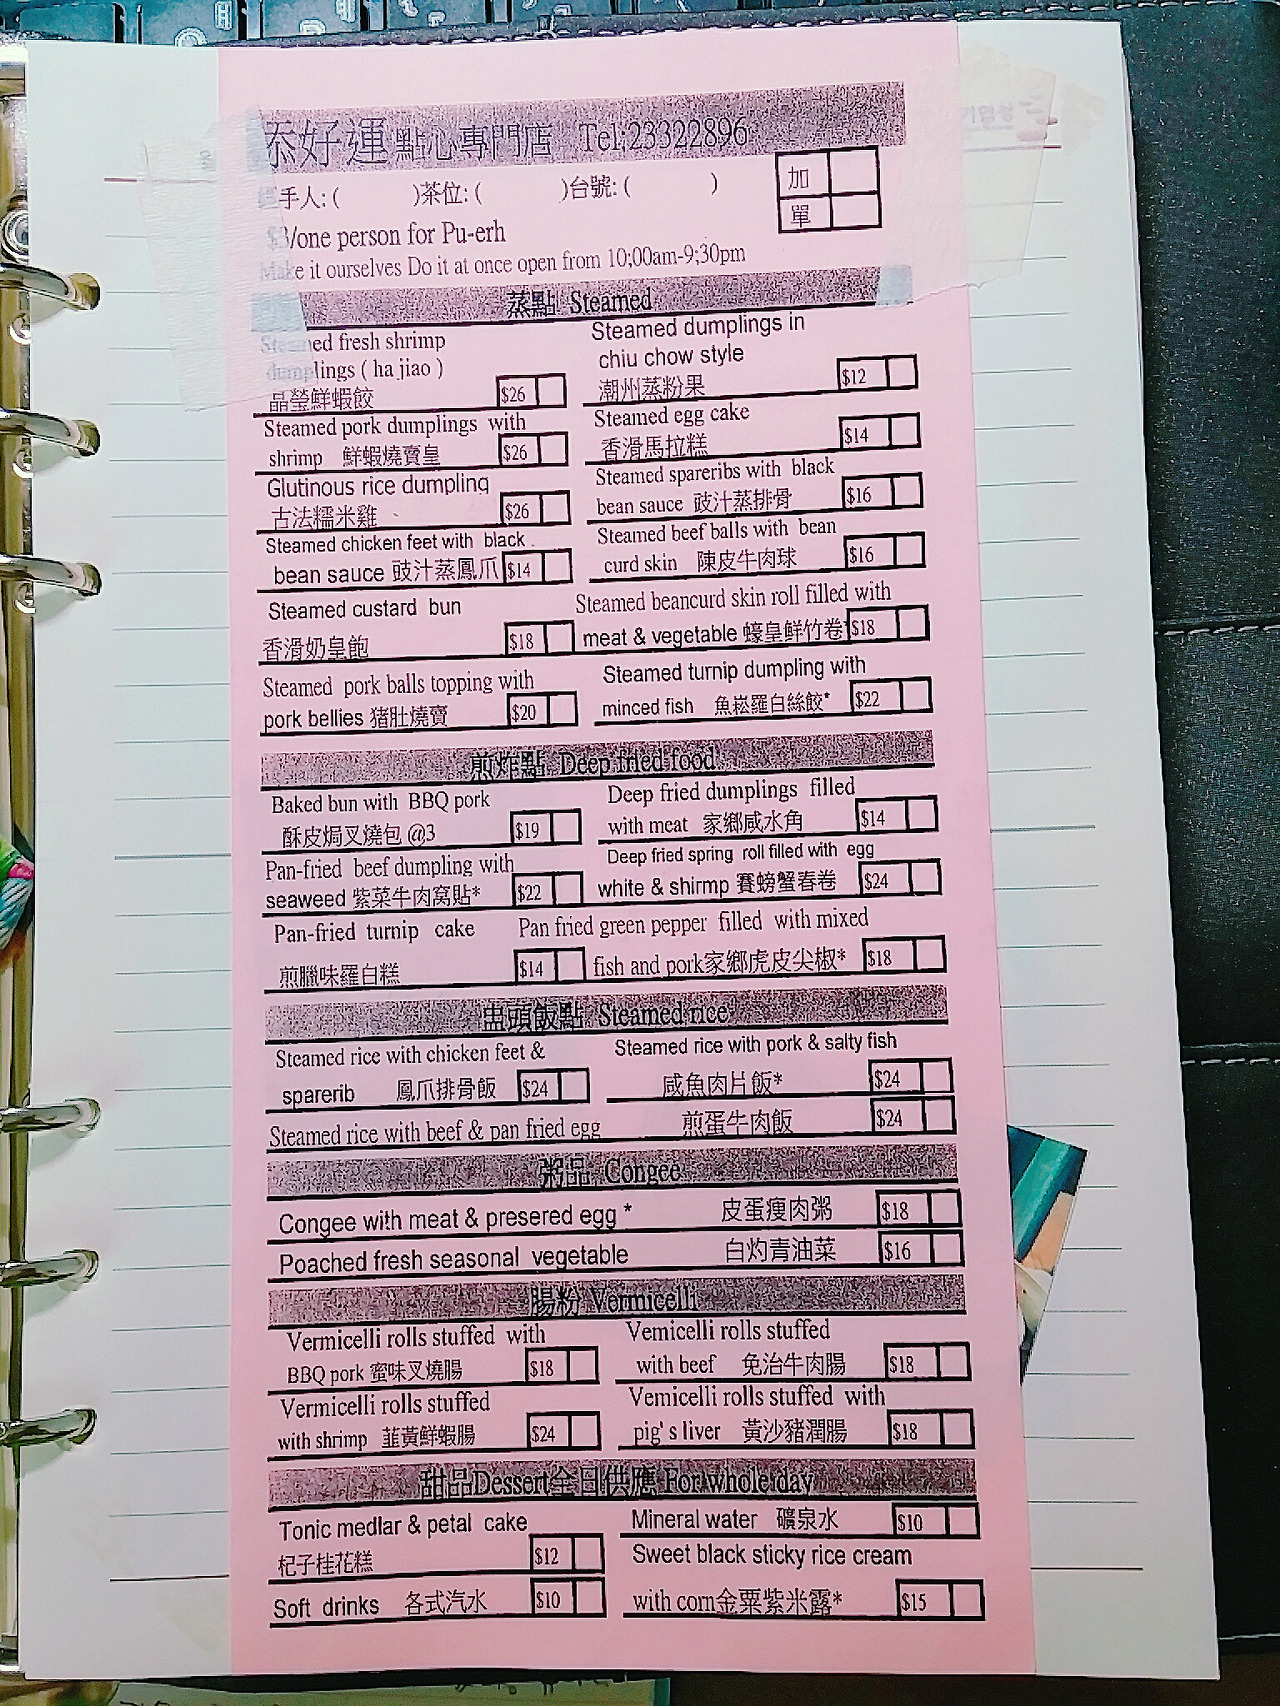 添好運點心專門店 Tel:23322896
手人:( )茶位:( )台號:( )
加
單
$3/one person for Pu-erh
Make it ourselves Do it at once open from 10;00am-9;30pm
蒸點 Steamed
Steamed fresh shrimp
dumplings ( ha jiao )
晶瑩鮮蝦餃 $26
Steamed dumplings in
chiu chow style
潮州蒸粉果 $12
Steamed pork dumplings with
shrimp 鮮蝦燒賣皇 $26
Steamed egg cake
香滑馬拉糕 $14
Glutinous rice dumpling
古法糯米雞 $26
Steamed spareribs with black
bean sauce 豉汁蒸排骨 $16
Steamed chicken feet with black
bean sauce 豉汁蒸鳳爪 $14
Steamed beef balls with bean
curd skin 陳皮牛肉球 $16
Steamed custard bun
香滑奶皇飽 $18
Steamed beancurd skin roll filled with
meat & vegetable 蠔皇鮮竹卷* $18
Steamed pork balls topping with
pork bellies 猪肚燒賣 $20
Steamed turnip dumpling with
minced fish 魚崧羅白絲餃* $22
煎炸點 Deep fried food
Baked bun with BBQ pork
酥皮焗叉燒包 @3 $19
Deep fried dumplings filled
with meat 家鄉咸水角 $14
Pan-fried beef dumpling with
seaweed 紫菜牛肉窩貼* $22
Deep fried spring roll filled with egg
white & shirmp 賽螃蟹春卷 $24
Pan-fried turnip cake
煎臘味羅白糕 $14
Pan fried green pepper filled with mixed
fish and pork家鄉虎皮尖椒* $18
盅頭飯點 Steamed rice
Steamed rice with chicken feet &
sparerib 鳳爪排骨飯 $24
Steamed rice with pork & salty fish
咸魚肉片飯* $24
Steamed rice with beef & pan fried egg 煎蛋牛肉飯 $24
粥品 Congee
Congee with meat & presered egg * 皮蛋瘦肉粥 $18
Poached fresh seasonal vegetable 白灼青油菜 $16
腸粉 Vermicelli
Vermicelli rolls stuffed with
BBQ pork 蜜味叉燒腸 $18
Vemicelli rolls stuffed
with beef 免治牛肉腸 $18
Vermicelli rolls stuffed
with shrimp 韮黃鮮蝦腸 $24
Vemicelli rolls stuffed with
pig's liver 黃沙豬潤腸 $18
甜品Dessert全日供應 For whole day
Tonic medlar & petal cake
杞子桂花糕 $12
Mineral water 礦泉水 $10
Soft drinks 各式汽水 $10
Sweet black sticky rice cream
with corn金粟紫米露* $15